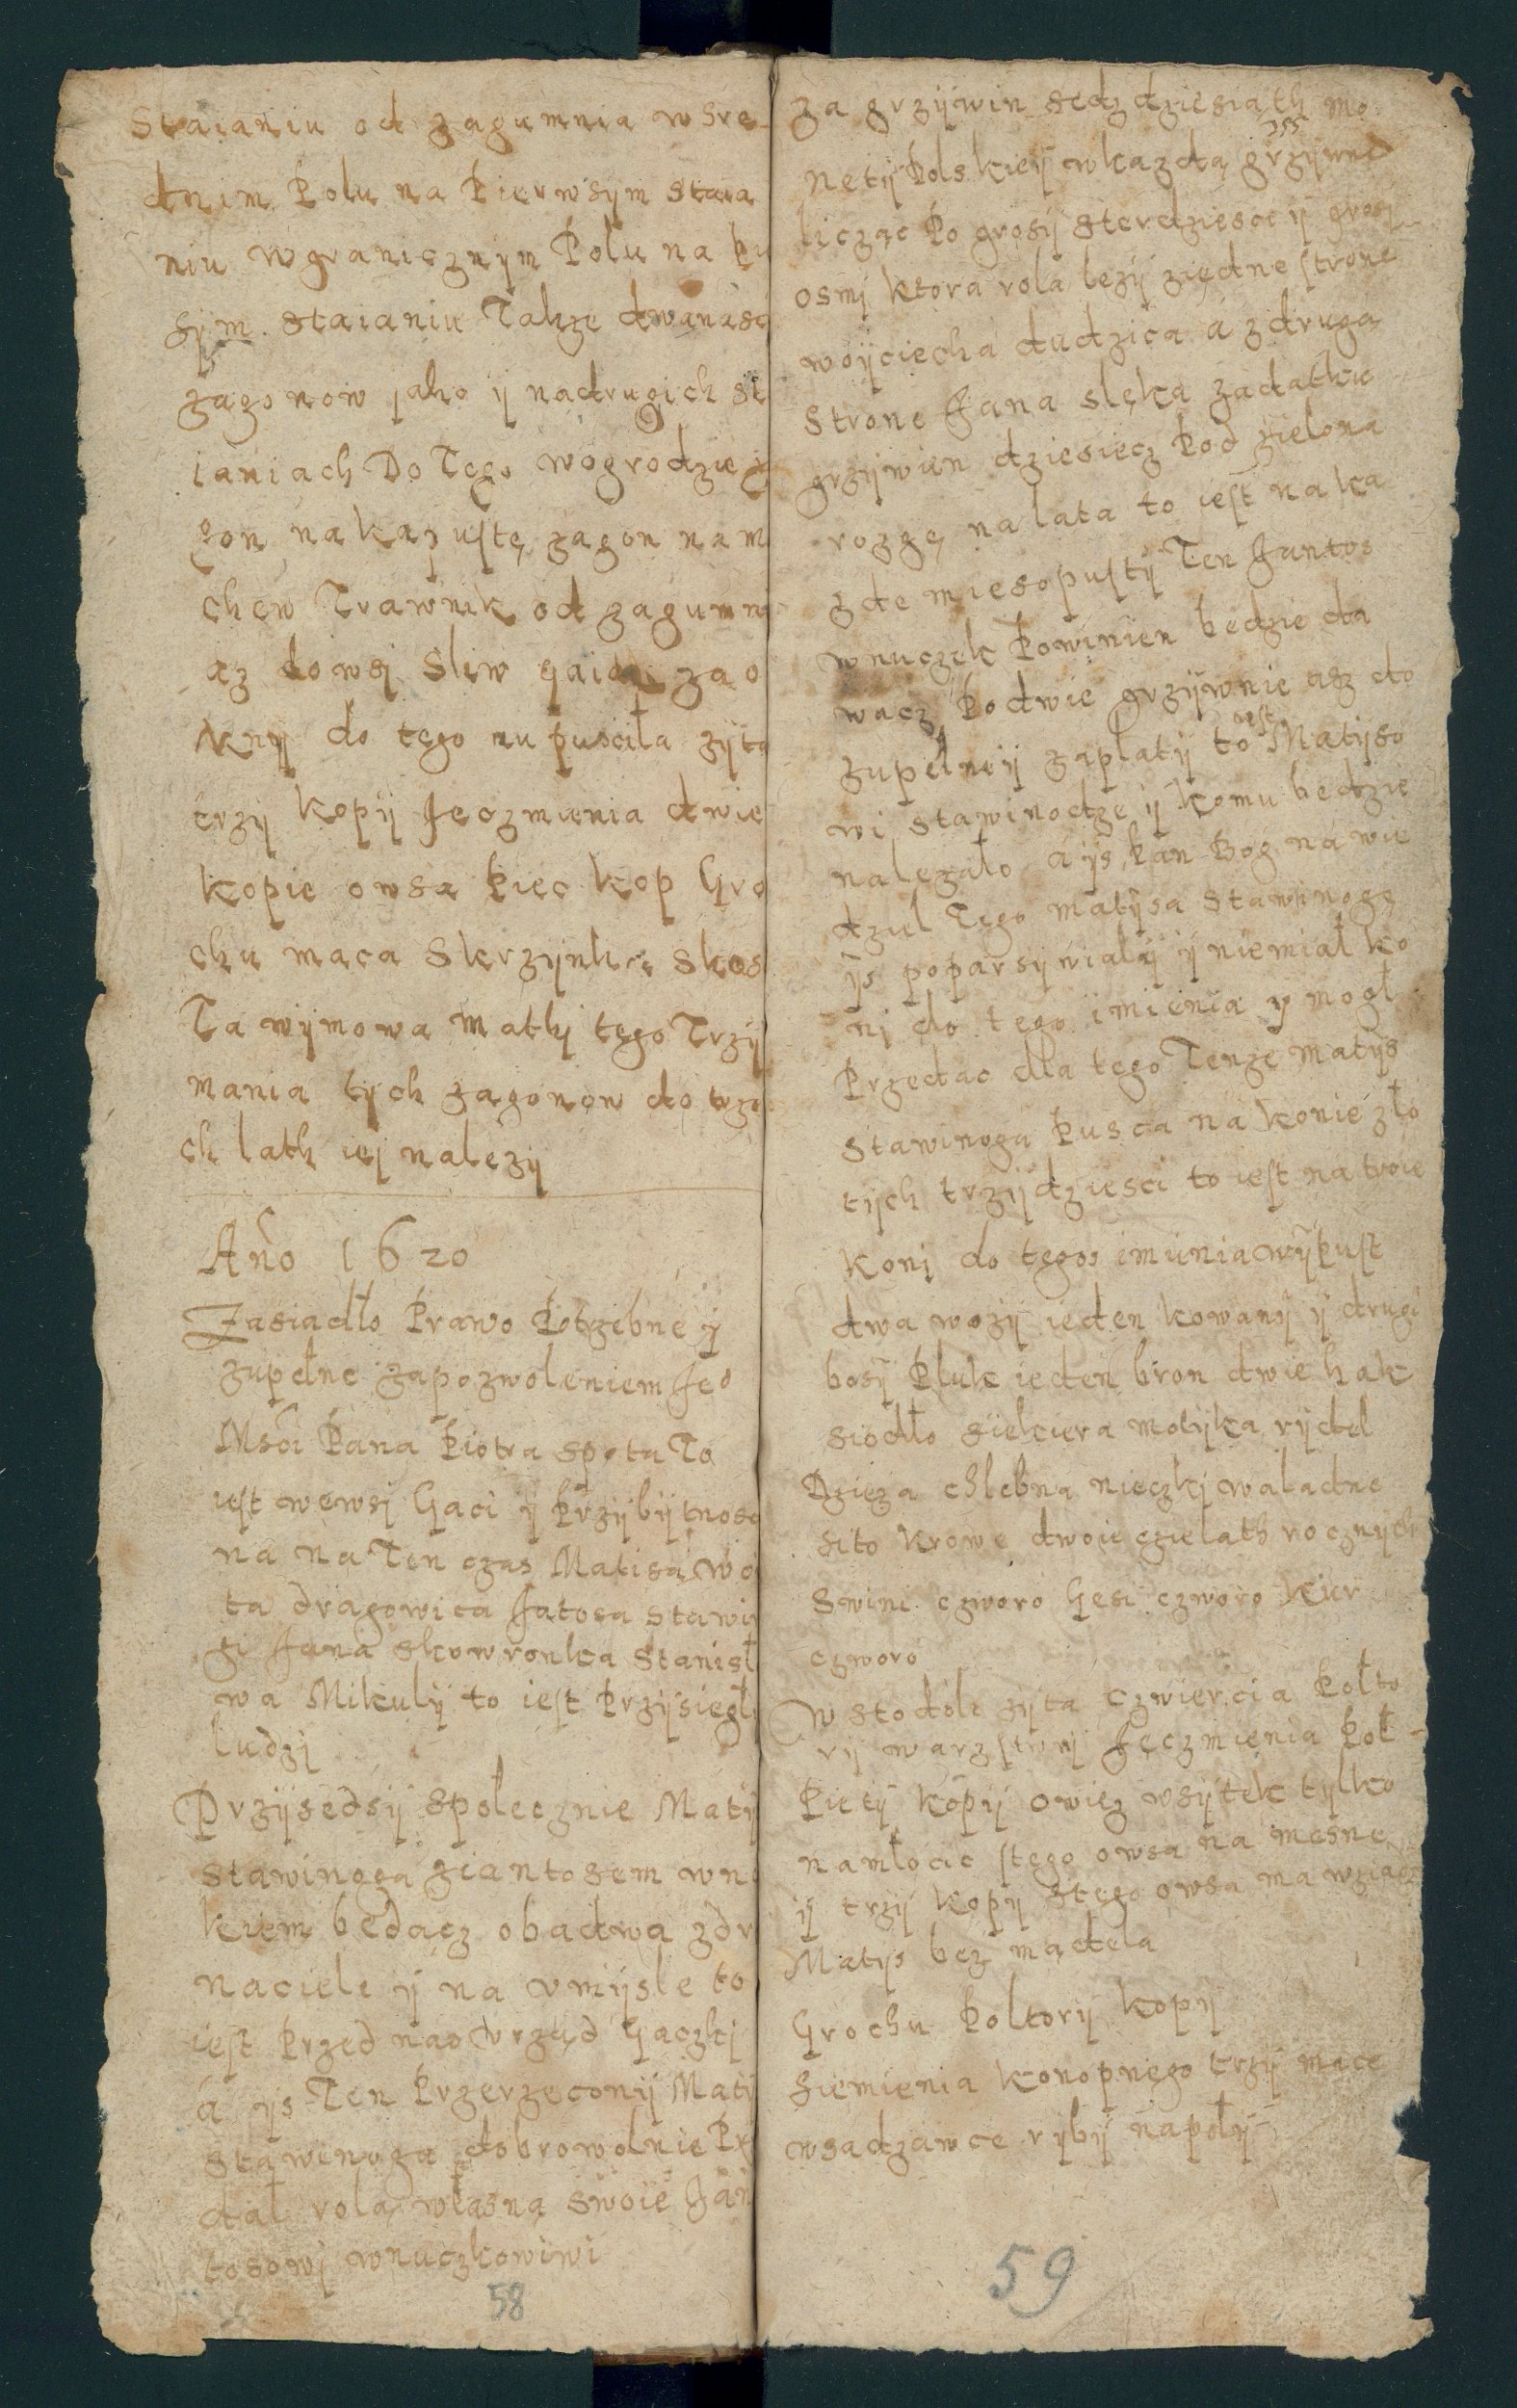 Staianiu od zagumnia wsre
dnim Polu na Pierwsym staia
niu wgranicznym Polu na Pu
sym staianiu Takze dwanasc
zagonow jako y nadrugich st
ianiach Do Tego wogrodzie z
gon na kapustę zagon nam
chew Trawnik od zagumn
az dowsj sliw gaidą zao
kny do tego nupuscila zyta
trzy kopy Jeczmienia dwie
kopie owsa Piec kop Gro
chu maca Skrzynkę skos
Ta wymowa matki tego Trzy
mania tych zagonow do trze
ch lath iej nalezy
Año 1620
Zasiadło Prawo Potrzebne y
zupełne zapozwoleniem Jeo
Msći Pana Piotra spota To
iest wewsi Gaci y Przybytnosc
na na Ten czas Matisa Wo
ta dragowica Jatosa stawin
gi Jana skowronka stanisł
wa Mikuly to iest Przysiegły
ludzj
Przysedsy społecznie Maty
stawinoga ziantosem wnu
kiem będącz obadwa zdr
naciele y na vmysle to
iest Przed nas Vrząd Gaczkj
a ys Ten Przerzeczony Maty
stawinoga dobrowolnie Pr
dał rolą własną swoie Jan
tosowj wnuczkowiwi
58
za grzywin sedzdziesiąth mo
nety Polskiey wkazdą grzywnę
licząc Po grosy sterdziesce y grosy
osmj ktora rola lezy ziedne strone
woyciecha dudzica a zdruga
strone Jana slęka zadatku
grzywien dziesiecz Pod zielona
rozgę na lata to iest na ka
zde miesopusty Ten Jantos
wnuczek Powinien będzie da
wacz Podwie grzywnie asz do
zupełney zaplaty to iest Matyso
wi stawinodze y komu będzie
nalezało a ys Pan Bog nawie
dzil Tego matysa stawinogę
ys poparsywialy y niemiał ko
nj do tego imienia y mogł
Przedac dla tego Tenze matys
stawinoga Pusca na konie zło
tych trzydziesci to iest na troie
konj do tego imunia wypust
dwa wozy ieden kowany y drugi
bosy Pluk ieden bron dwie hak
siodło siekiera motyka rydel
Dzieza chlebna nieczkj waladne
sito krowe dwoie czielath rocznych
swini czworo Gesi czworo kur
czworo
w stodole zyta czwiercia Połto
ry warzstwj Jęczmienia Poł
Piety kopy owiez wsytek tylko
namłocic stego owsa na mesne
y trzy kopy stego owsa ma wziącz
Matys bez mądela
Grochu Połtory kopy
siemienia konopnego trzy mace
wsadzawce ryby napoły
59